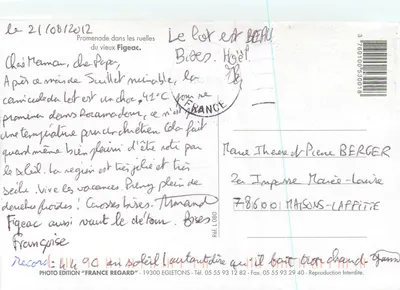 le 21/08/2012
Promenade dans les ruelles
du vieux Figeac.
Le lot est BEAU
Bises.
Chère Maman, cher Papa,
Après ce mois de Juillet minable, la
canicule du Lot est un choc. 41°C pour se
promener dans Rocamadour, ce n'est
une température pour un chrétien. Cela fait
quand même bien plaisir d'être rôti par
le soleil. La région est très jolie et très
belle. Vive les vacances. Prenez plein de
douches froides! Grosses bises.
Figeac aussi vaut le détour. Bises
Françoise
record: 44,90 au soleil! autant dire qu'il fait trop chaud
FRANCE
Marie Thérèse et Pierre BERGER
2a Impasse Marie-Louise
78600 MAISONS-LAFFITTE
PHOTO EDITION "FRANCE REGARD" - 19300 EGLETONS - Tél. 05 55 93 12 82 - Fax. 05 55 93 29 40 - Reproduction Interdite.